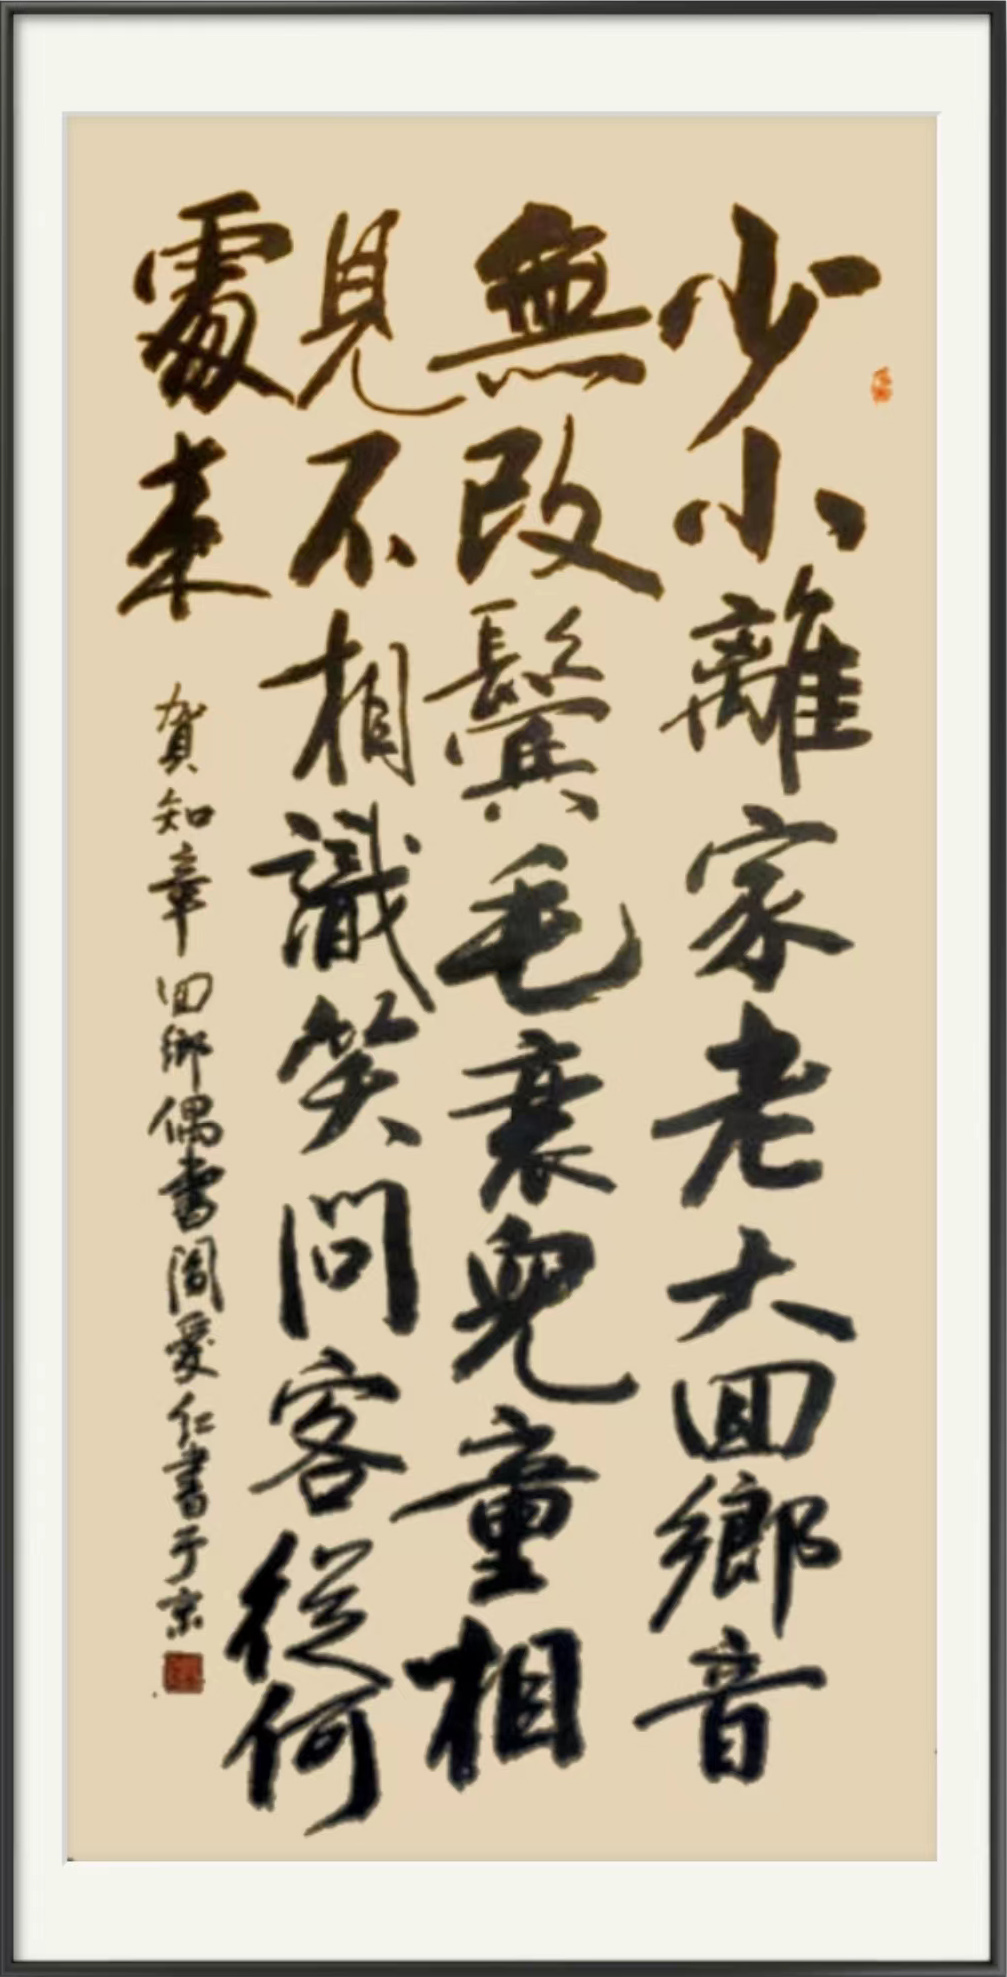 少小離家老大囬鄉音
無改鬢毛衰兒童相
見不相識笑問客從何
處来
賀知章囬鄉偶書閻愛仁書于京